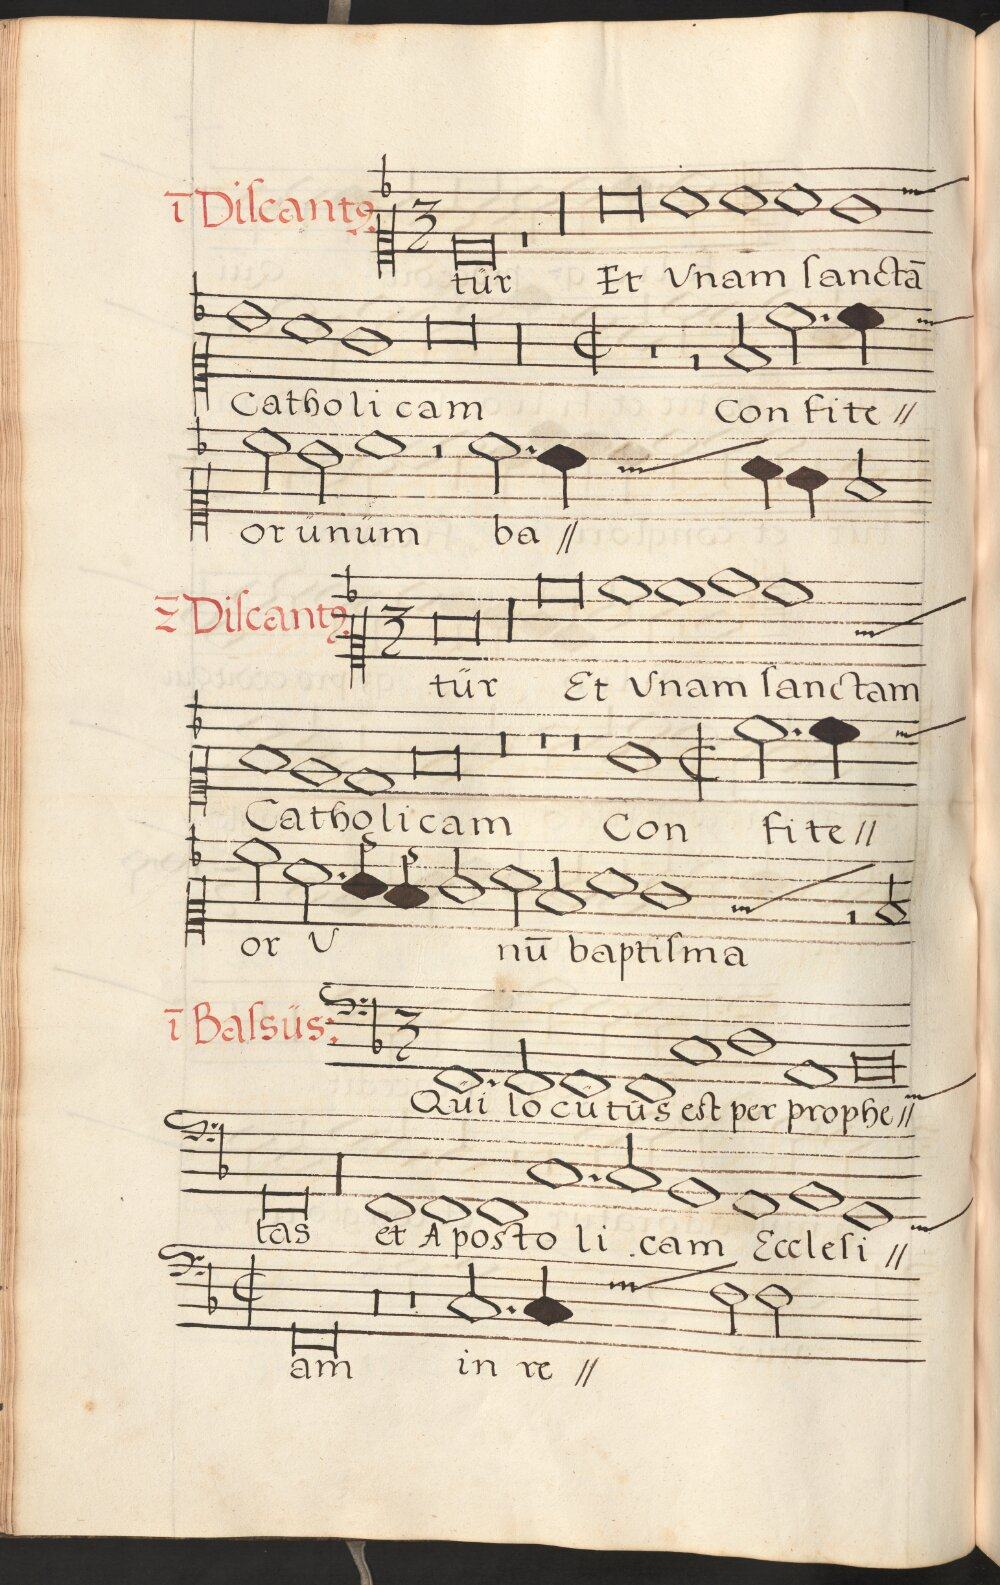 1̅ Diſcantꝯ.
tür Et Vnam ſanctā
Catholicam Confite //
or ünüm ba //
2̅ Diſcantꝯ.
tür Et Vnam ſanctam
Catholicam Con fite //
or V nū baptiſma
1̅ Baſsüs:
Qui locutüs est per prophe //
tas et Apostoli.cam Eccleſi //
am in re //